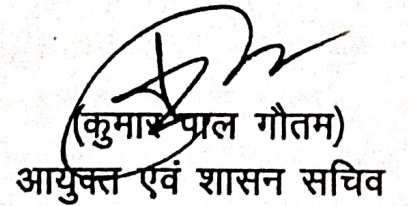 (कुमार पाल गौतम)
आयुक्त एवं शासन सचिव